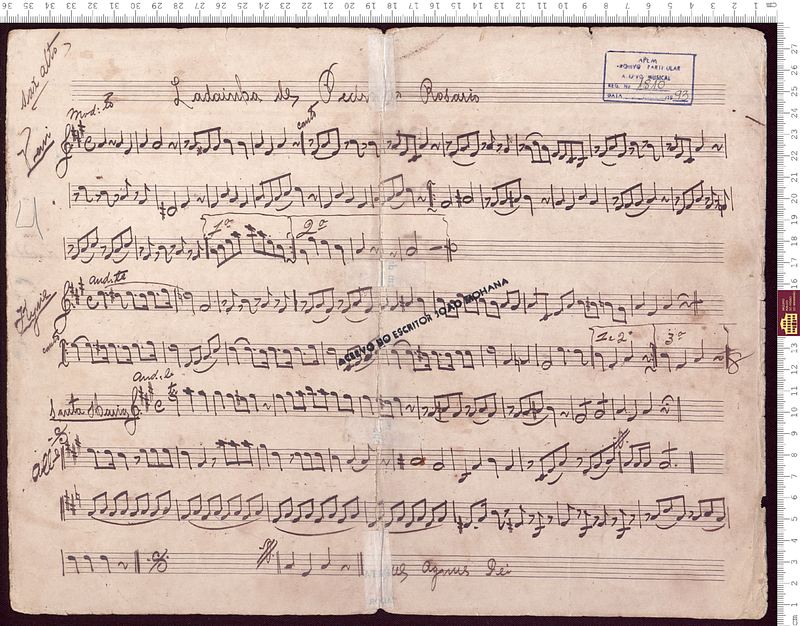 sax alto
Ladainha de
Rosario
APEM
ARQUIVO PARTICULAR
ACERVO MUSICAL
REG. No 1810
DATA 93
Mod.to
canto
1ª 2ª
Kyrie
Andte
ACERVO DO ESCRITOR JOÃO MOHANA
canto
1e2ª 3ª
And.to
Santa Maria
Allº
Agnus Dei